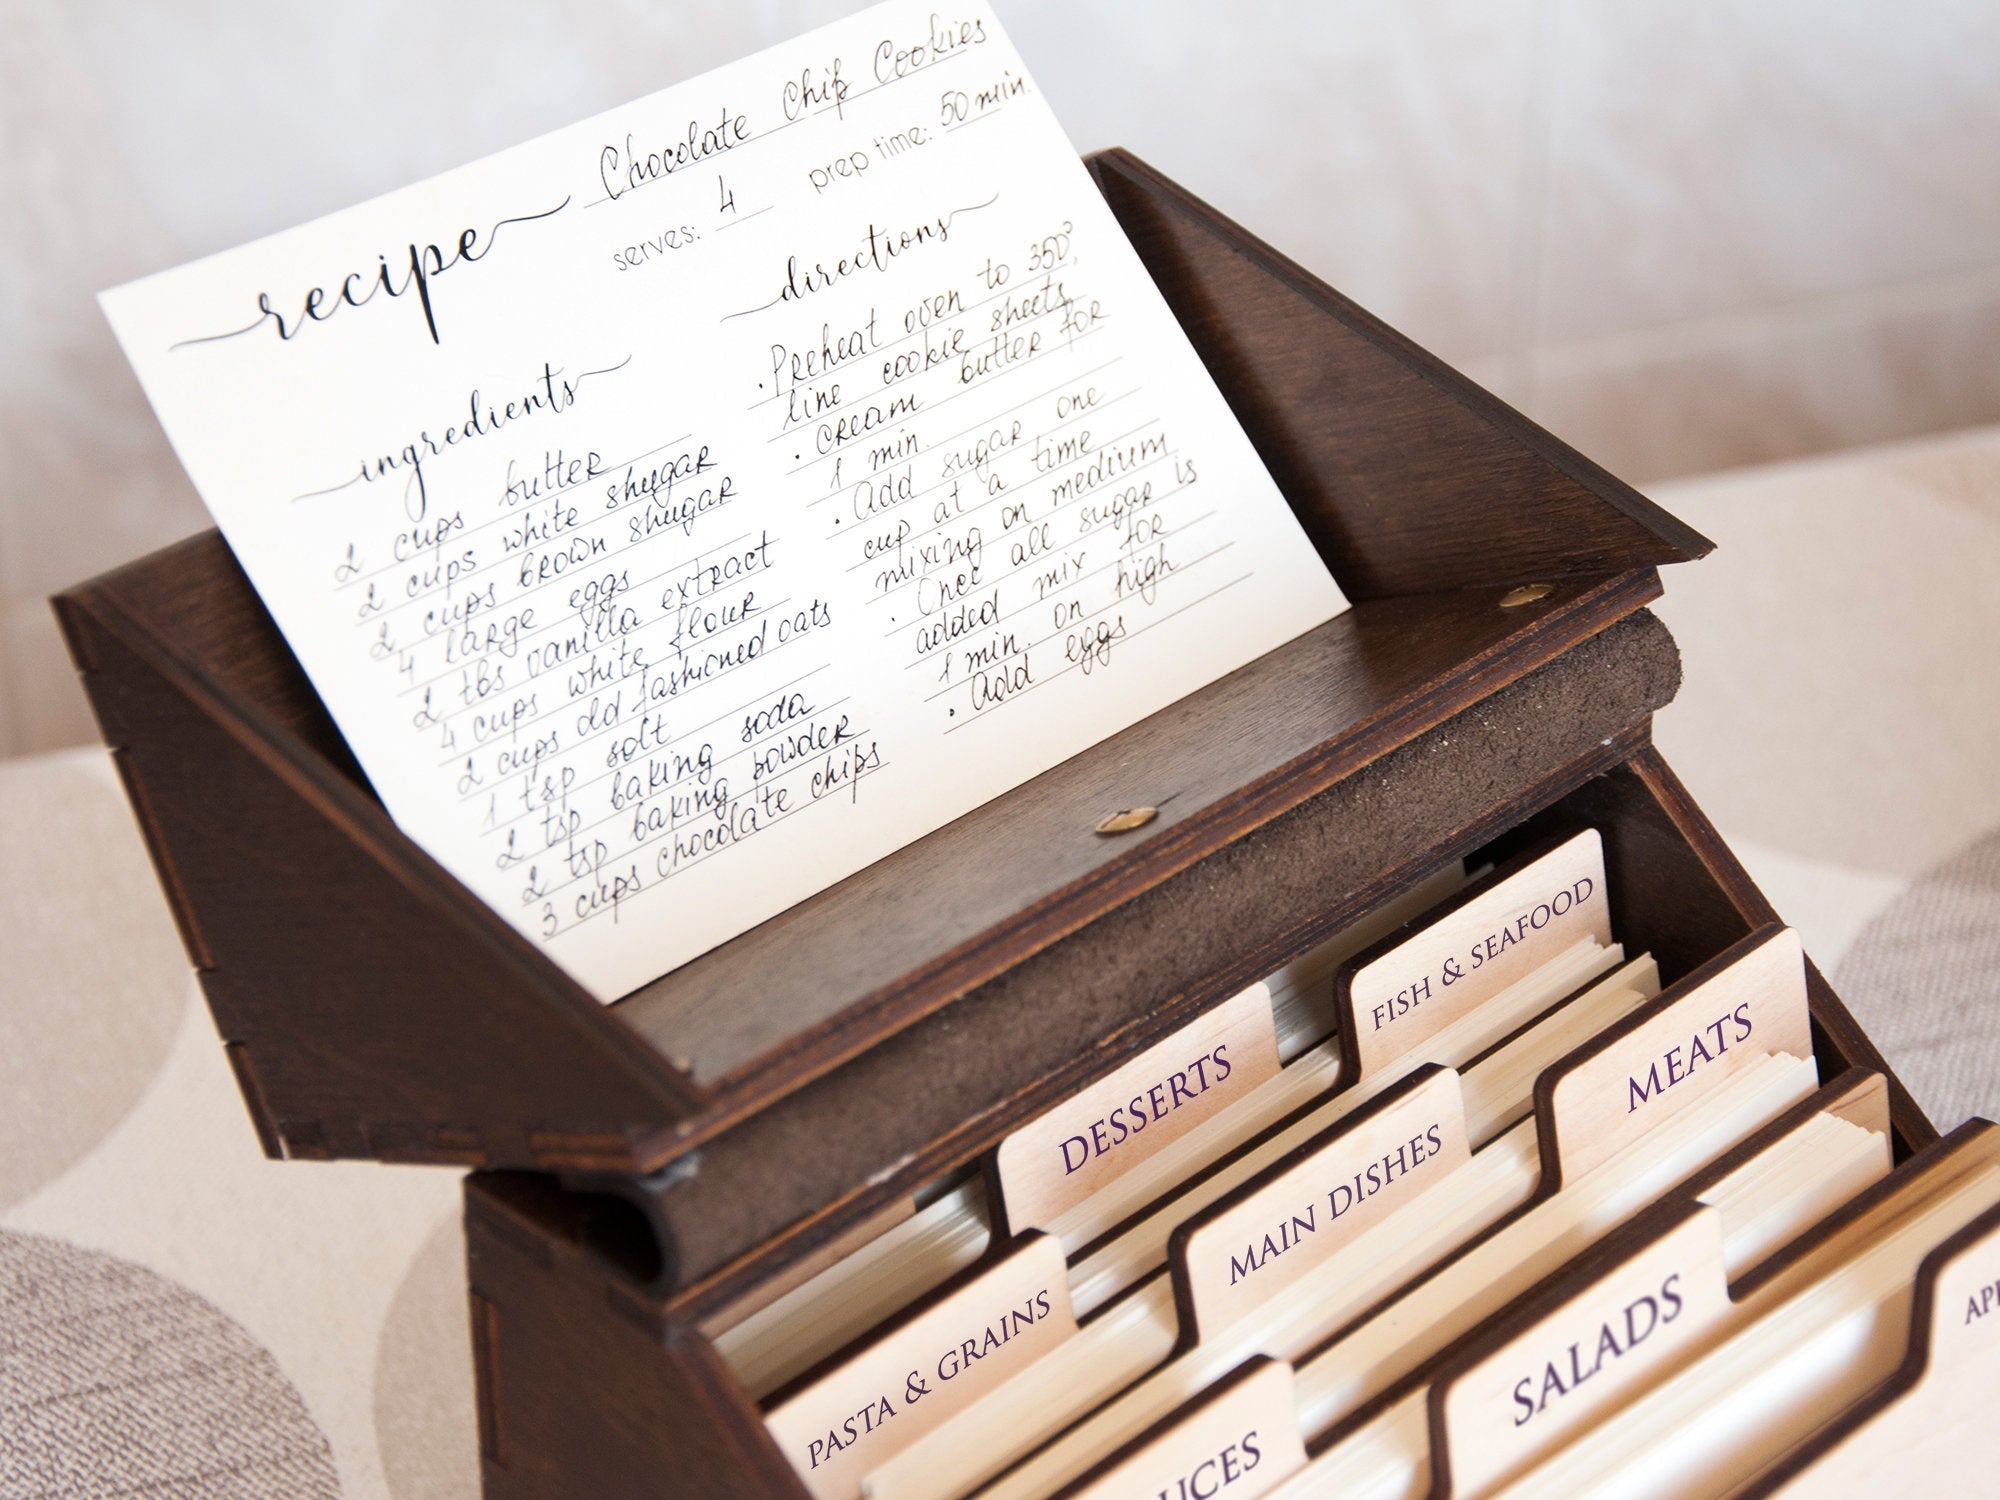 recipe Chocolate Chip Cookies
serves: 4 prep time: 50 min.
ingredients
2 cups butter
2 cups white shugar
2 cups brown shugar
4 large eggs
2 tbs vanilla extract
4 cups white flour
2 cups old fashioned oats
1 tsp solt
2 tsp baking soda
2 tsp baking powder
3 cups chocolate chips
directions
· Preheat oven to 350°,
line cookie sheets
· cream butter for
1 min.
· Add sugar one
cup at a time
mixing on medium
· Once all sugar is
added mix for
1 min. on high
· Add eggs
FISH & SEAFOOD
DESSERTS
MEATS
MAIN DISHES
PASTA & GRAINS
SALADS
UCES
AP